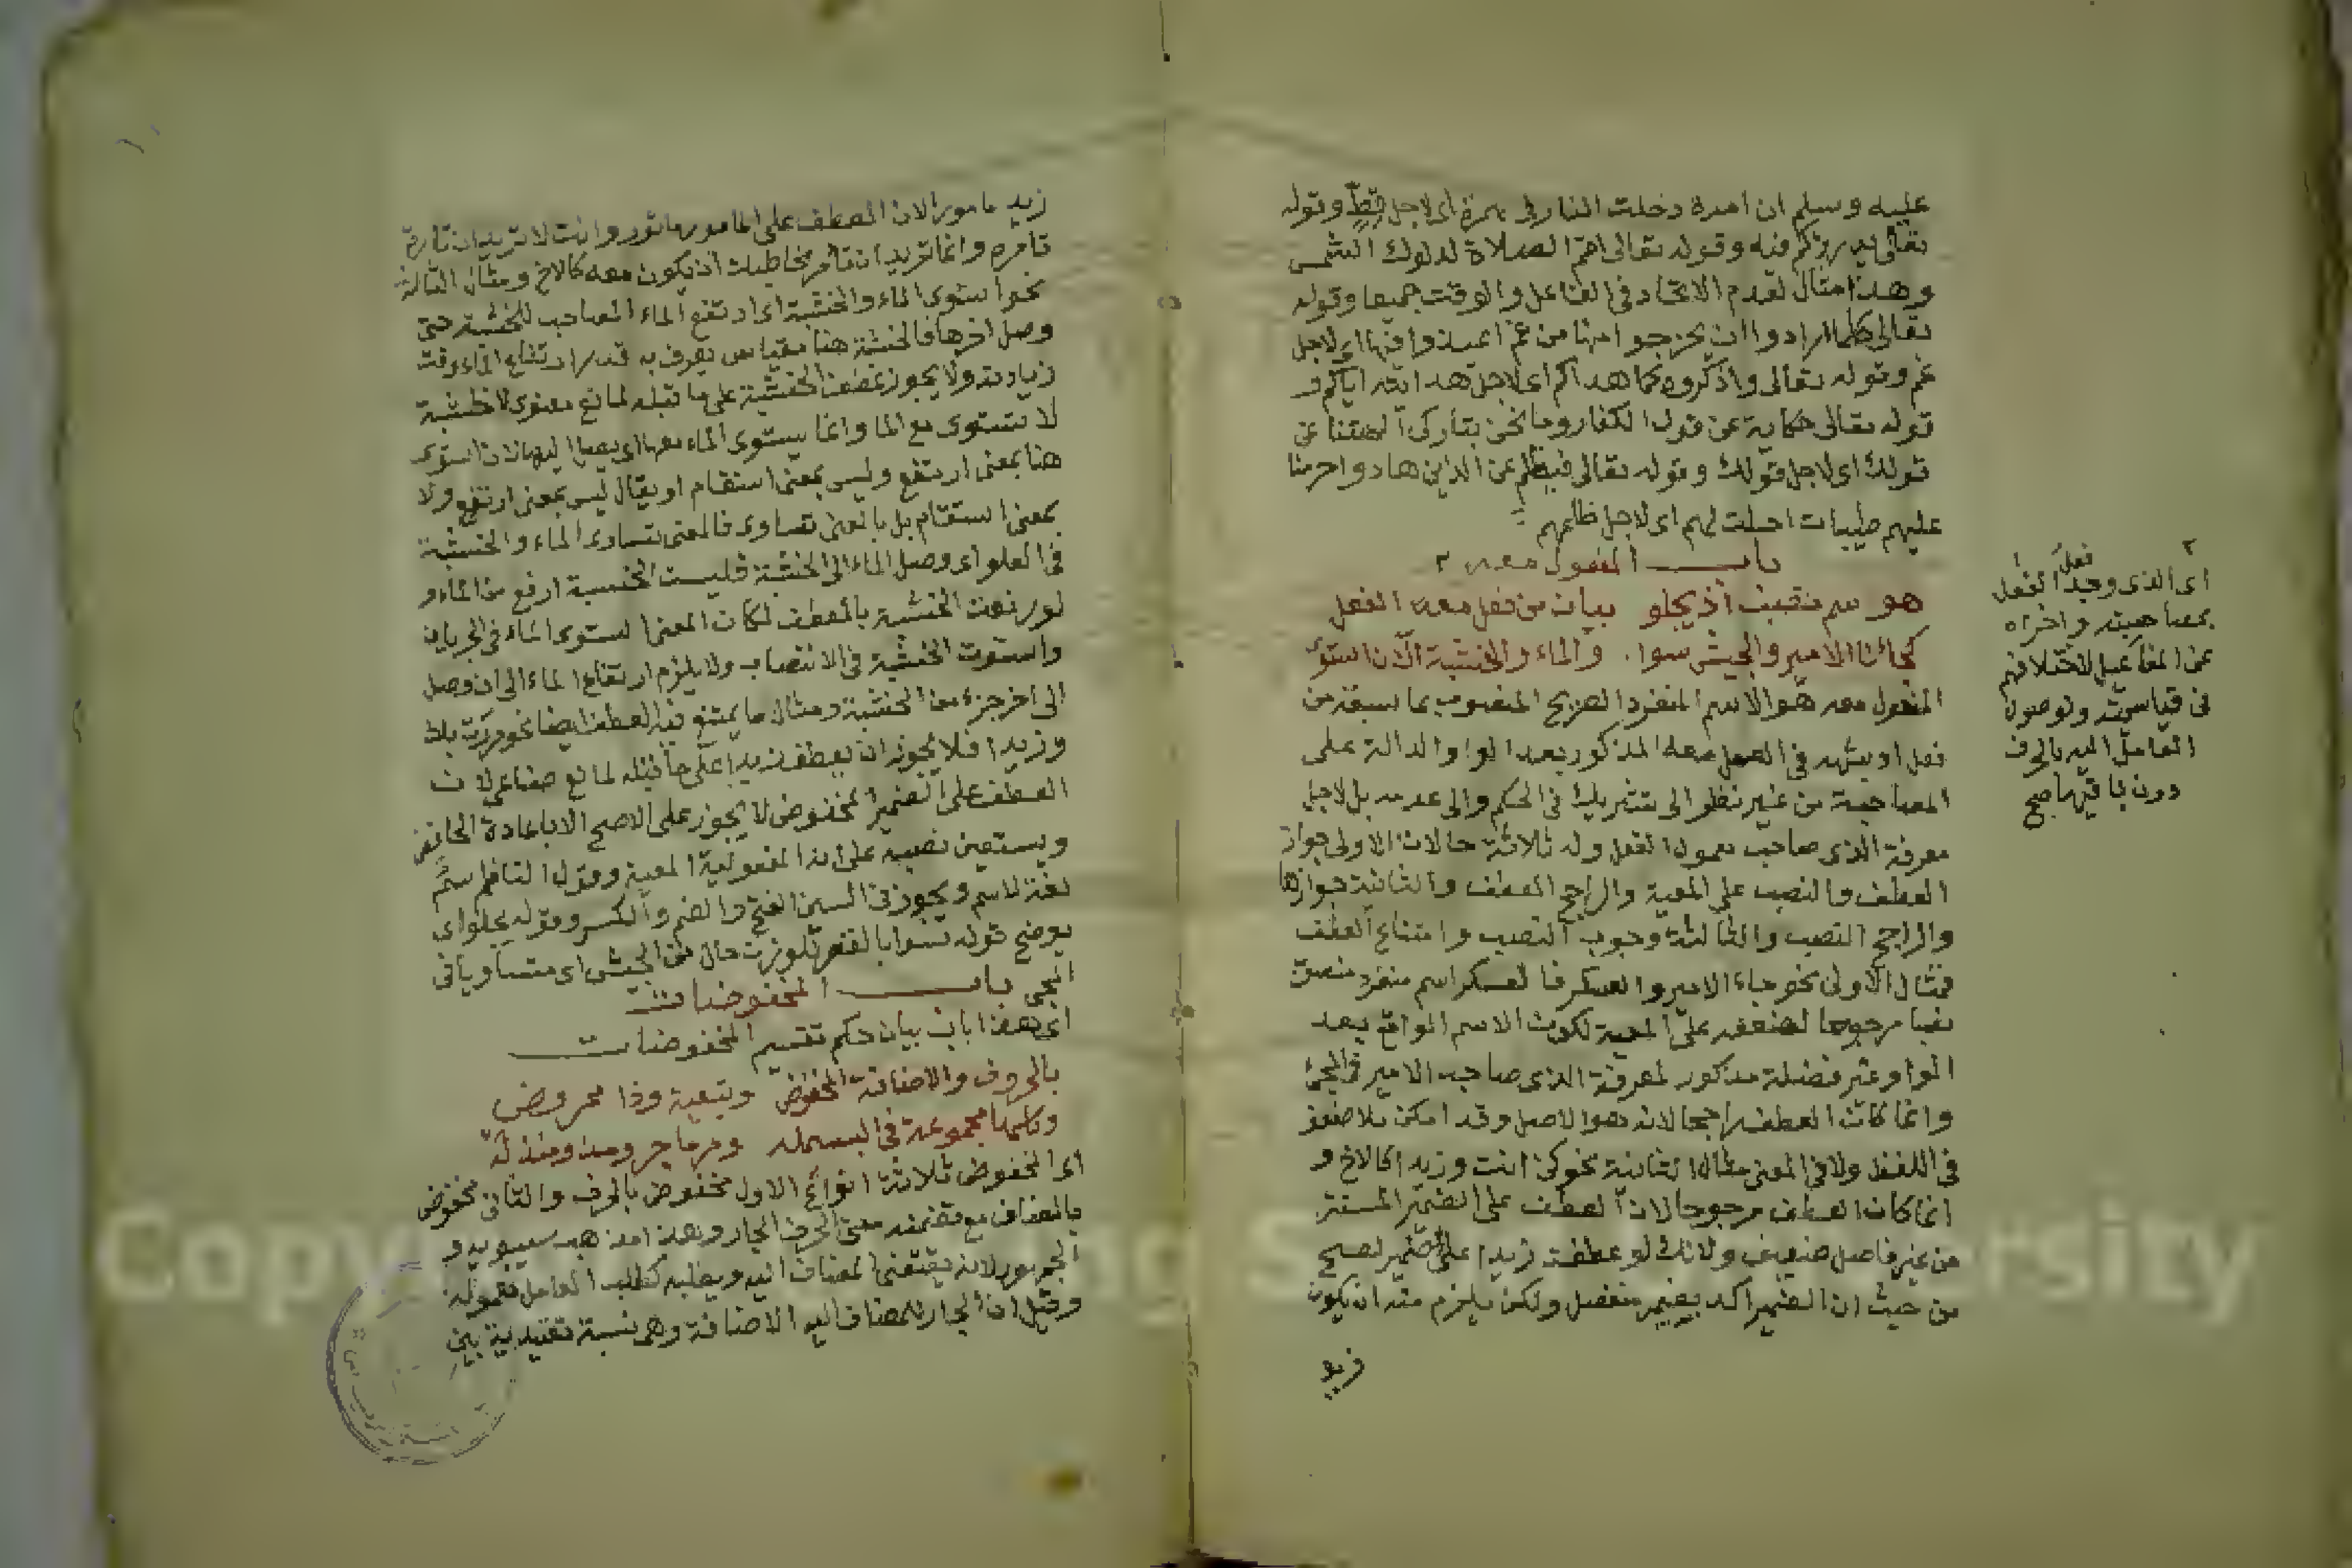 عليه وسلم ان امرة دخلت النار في هرة اى لاجل قطة وقوله
تعالى يذرؤكم فيه وقوله تعالى اقم الصلاة لدلوك الشمس
وهذا مثال لعدم الاتحاد في الفاعل والوقت جميعا وقوله
تعالى كلما ارادوا ان يخرجوا منها من غم اعيدوا فيها اى لاجل
غم وقوله تعالى واذكروه كما هداكم اى لاجل هداية اياكم و
قوله تعالى حكاية عن قول الكفار وما نحن بتاركى آلهتنا عن
قولك اى لاجل قولك وقوله تعالى فبظلم من الذين هادوا حرمنا
عليهم طيبات احلت لهم اى لاجل ظلمهم
باب المفعول معه ٢
هو سم نصيب اذ يجلو بيان من فعل معه الفعل
كجائنا الامير والجيش سوا. والماء والخشبة الآن استوى
المفعول معه هو الاسم المنفرد الصريح المنصوب بما سبقه من
فعل او شبهه في العمل معه المذكور بعد الواو الدالة على
المصاحبة من غير نظر الى تشريك في الحكم والى عدمه بل لاجل
معرفة الذى صاحب معمول الفعل وله ثلاثة حالات الاولى جواز
العطف والنصب على المعية والراجح العطف والثانية جوازهما
والراجح النصب والثالثة وجوب النصب وامتناع العطف
فمثال الاولى نحو جاء الامير والعسكر فالعسكر اسم منفرد منصوب
نصبا مرجوحا لضعفه على المعية لكون الاسم الواقع بعد
الواو غير فضلة مذكور لمعرفة الذى صاحب الامير في المجئ
وانما كان العطف راجحا لانه هو الاصل وقد امكن بلا ضعف
في اللفظ ولا في المعنى مثال الثانية نحو كن انت وزيدا كالاخ و
انما كان العطف مرجوحا لان العطف على الضمير المستتر
من غير فاصل ضعيف ولانك لو عطفت زيدا على الضمير لصح
من حيث ان الضمير اكد بضمير منفصل ولكن يلزم منه ان يكون
زيد
٢
اى الذى وجد الفعل
بمصاحبته واخره
عن المفاعيل لاختلافهم
في قياسيته ولوصول
العامل اليه بالحرف
دون باقيها صح
زيد مامورا لان العطف على المامور مامور وانت لا تريد ان
تامره وانما تريد ان تامر مخاطبك ان يكون معه كالاخ ومثال الثالثة
نحو استوى الماء والخشبة اى ارتفع الماء المصاحب للخشبة حتى
وصل اخرها فالخشبة هنا مقياس يعرف به قدر ارتفاع الماء وقت
زيادته ولا يجوز عطف الخشبة على ما قبله لمانع معنوى لان الخشبة
لا تستوى مع الما وانما يستوى الماء معها اى يصل اليها لان استوى
هنا بمعنى ارتفع وليس بمعنى استقام او يقال ليس بمعنى ارتفع ولا
بمعنى استقام بل بالمعنى تساوى فالمعنى تساوى الماء والخشبة
في العلو اى وصل الماء الى الخشبة فليست الخشبة ارفع من الماء و
لو رفعت الخشبة بالعطف لكان المعنى استوى الماء في الجريان
واستوت الخشبة في الانتصاب ولا يلزم ارتفاع الماء الى ان وصل
الى اخر جزء من الخشبة ومثال ما يمتنع فيه العطف ايضا نحو مررت بك
وزيدا فلا يجوز ان يعطف زيدا على ما قبله لمانع صناعى لان
العطف على الضمير المخفوض لا يجوز على الاصح الا باعادة الخافض
ويستعين نصبه على المفعولية المعية وقول الناظم سم
لغة لاسم ويجوز في السين الفتح والضم والكسر وقوله يجلو اى
يوضح قوله سوا بالقصر للوزن حال من الجيش اى متساويا في
المجى باب المخفوضات
اى هذا باب بيان حكم تقسيم المخفوضات
بالحروف والاضافة المخفوض وتبعية وذا مجروض
وكلها مجموعة في البسمله
اى المخفوض ثلاثة انواع الاول مخفوض بالحرف والثانى مخفوض
بالمضاف مع تضمنه معنى الحرف الجار وهذا مذهب سيبويه و
الجمهور لانه يقتضى المضاف اليه ويطلبه كطلب العامل معموله
وقيل ان الجار للمضاف اليه الاضافة وهى نسبة تقييدية بين
Copy King S University